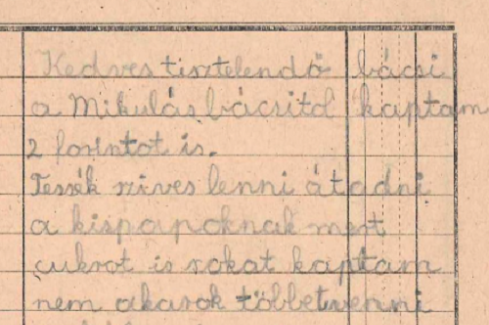 Kedves tisztelendő bácsi
a Mikulás bácsitol kaptam
2 forintot is.
Tessék szives lenni átadni
a kispapoknak mert
cukrot is sokat kaptam
nem akarok többet venni